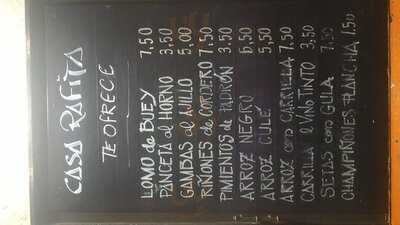 CASA RAFITA
TE OFRECE
LOMO de BUEY 7,50
PANCETA al HORNO 3,50
GAMBAS al AJILLO 5,00
RIÑONES de CORDERO 7,50
PIMIENTOS de PADRÓN 3.50
ARROZ NEGRO 6,50
ARROZ CULÉ 5,50
ARROZ con CARRILLA 7,50
CARRILLA al VINO TINTO 3,50
SETAS con GULA 7.50
CHAMPIÑONES PLANCHA, 1.50